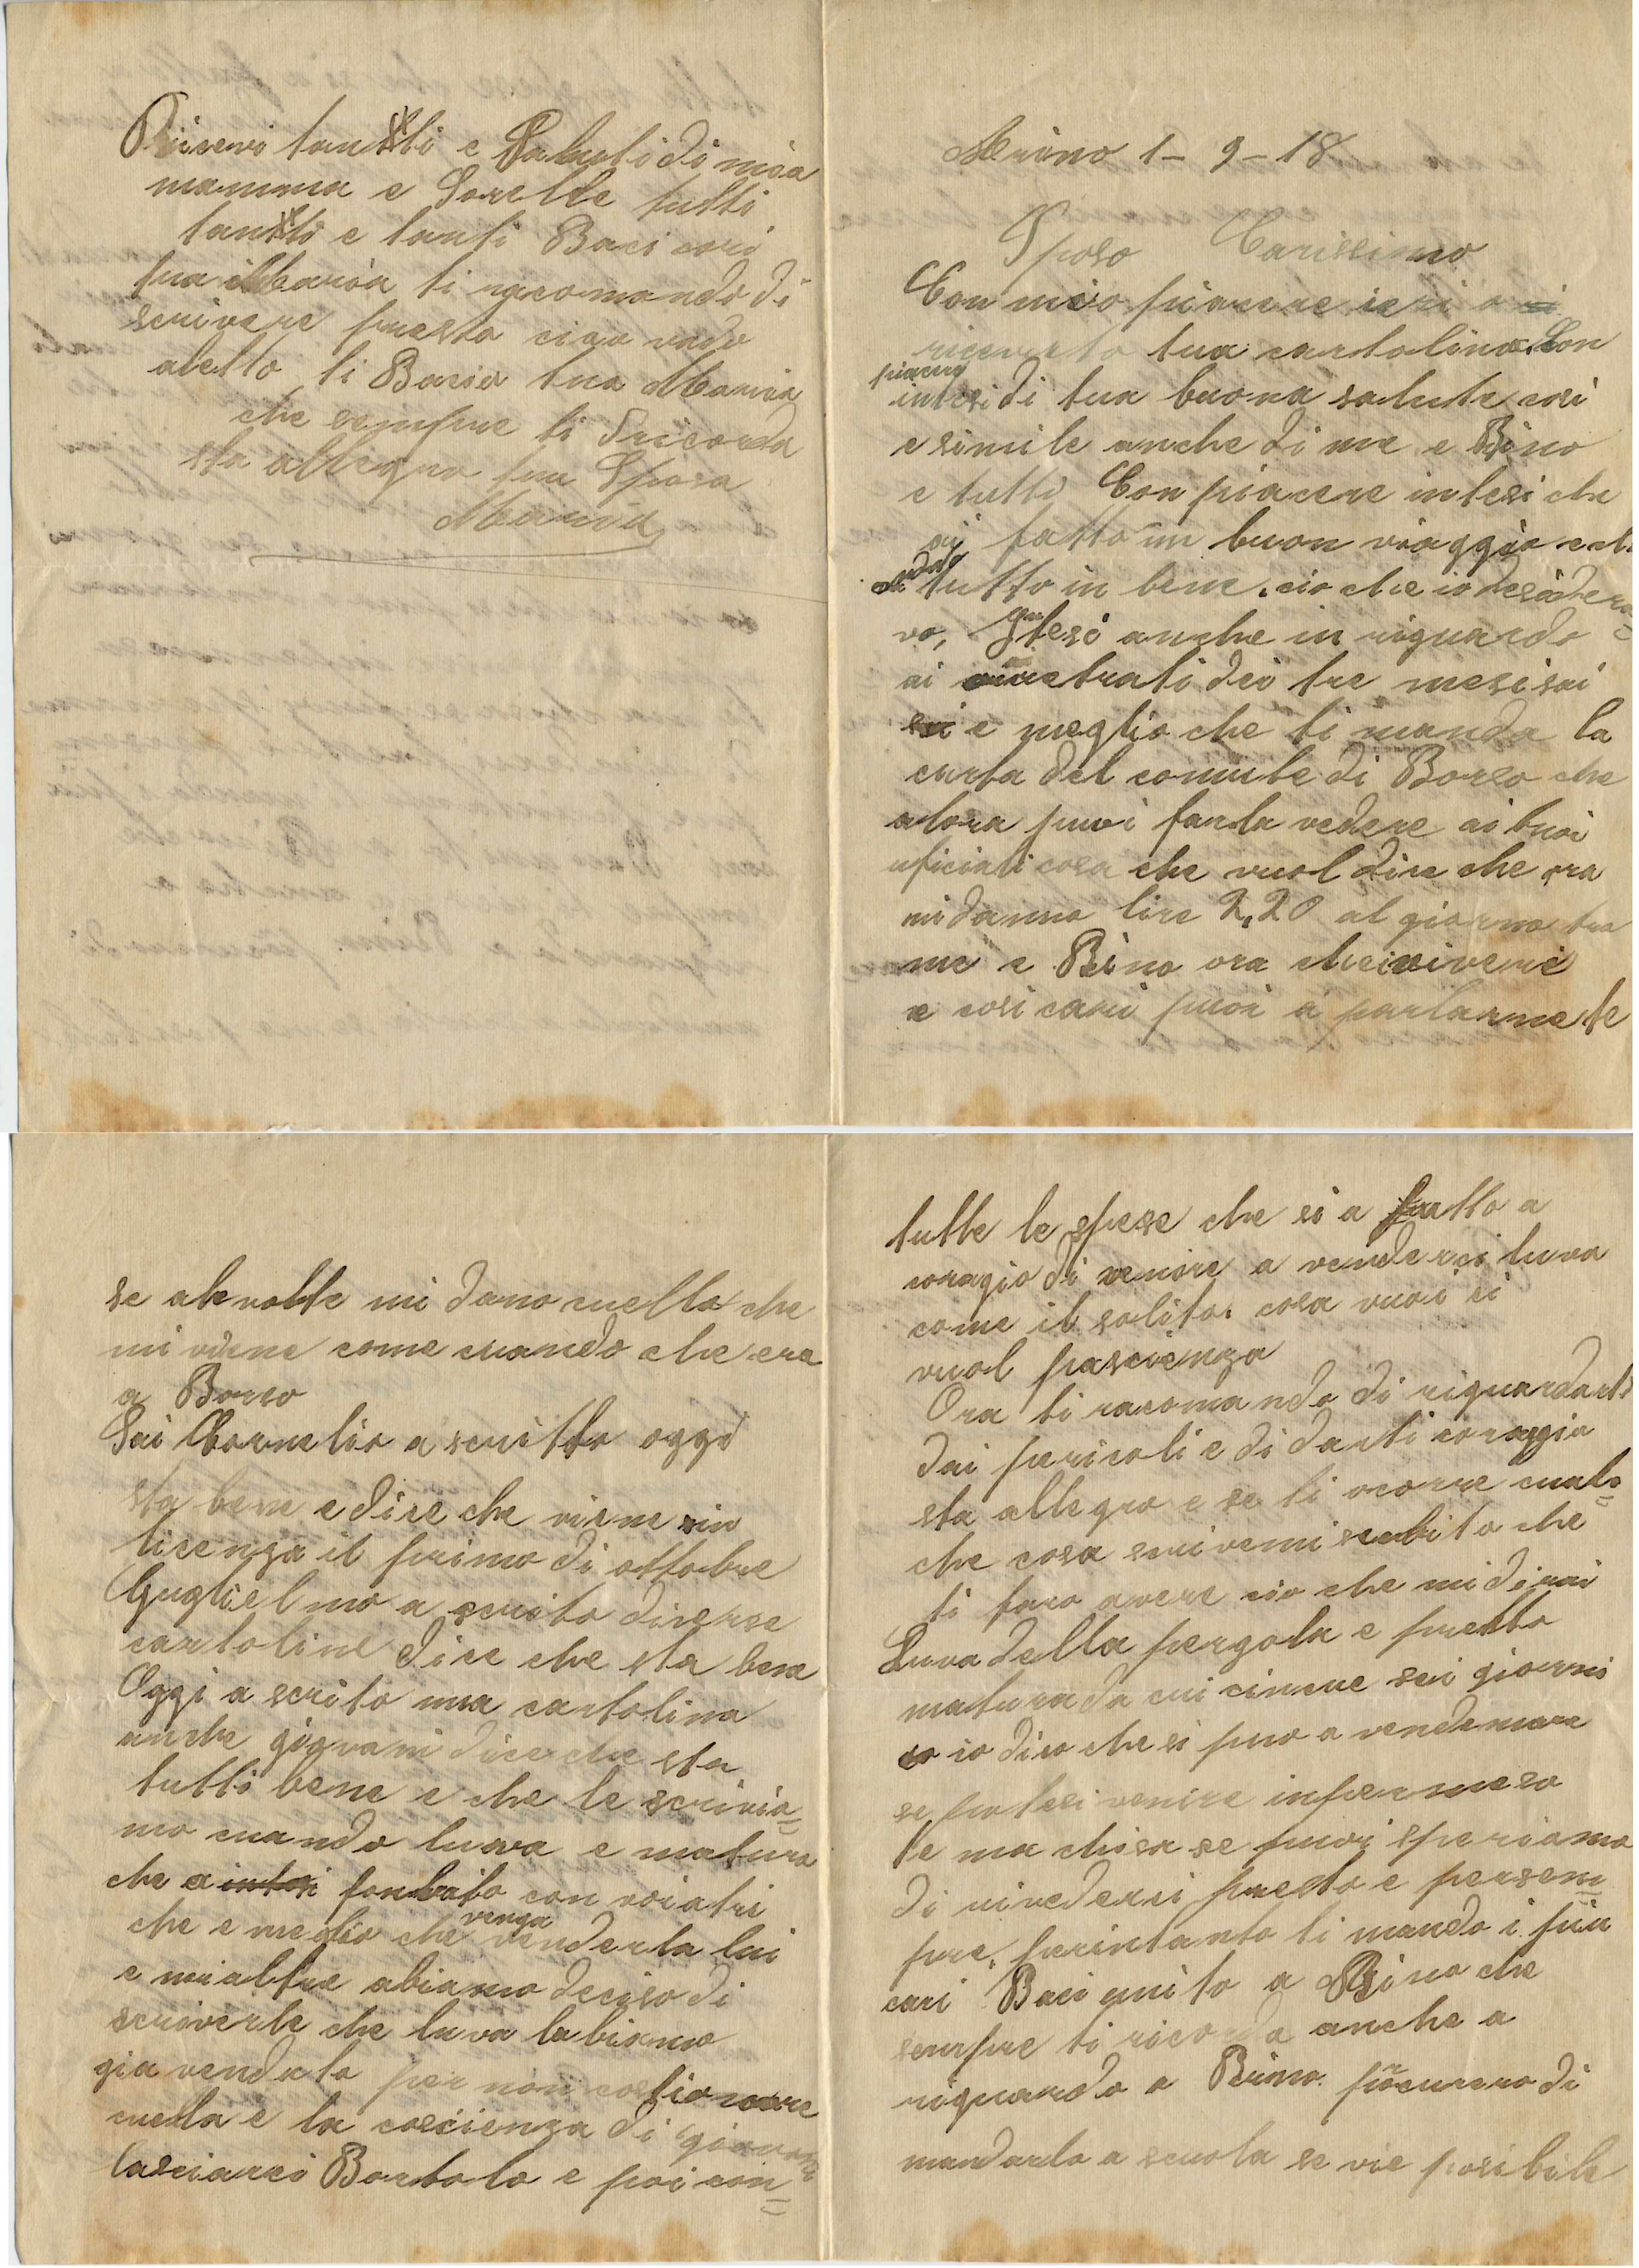 Merino 1-9-18
Sposo Carissimo
Con mio piacere ieri o
ricevuto tua cartolina. Con
piacere
intesi di tua buona salute cosi
e simile anche di me e Bino
e tutti Con piacere intesi che
ai fatto un buon viaggio e che
andato
tutto in bene. cio che io desidera
vo, Intesi anche in riguardo
ai aretrati dei tre mesi sai
e meglio che ti manda la
carta del comite di Borso che
alora puoi farla vedere ai tuoi
uficiali cosa che vuol dire che ora
mi danno lire 2,20 al giorno tra
me e Bino ora che
e cosi cari puoi a parlarme te
se ale volte mi dano cuello che
mi viene come cuando che era
a Borso
Sai Cornelio a scritto oggi
sta bene e dice che viene in
licenza il primo di ottobre
Guglielmo a scrito diverse
cartoline dice che sta bene
Oggi a scrito una cartolina
anche giovani dice che sta
tutti bene e che le scrivia=
mo cuando luva e matura
che a intesi con voiatri
venga
che e meglio che venderla lui
e noialtre abiamo deciso di
scriverle che luva labiamo
gia venduta per non
cuela e la coscienza di giovani
lasciarci Bortolo e poi con=
tutte le spese che si a fatto a
coragio di venire a venderci luva
come il solito. cosa vuoi ci
vuol pascienza
Ora ti racomando di riguardarti
dai pericoli e di darti coraggio
sta allegro e se ti ocorre cuals=
che cosa scrivemi subito che
ti faro avere cio che mi dirai
Luva della pergola e presto
matura da cui cincue sei giorni
io dico che si puo a vendemare
se potesi venire in permeso
te ma chisa se puoi speriamo
di rivederci presto e persem=
pre, perintanto ti mando i piu
cari Baci unito a Bino che
sempre ti ricorda anche a
riguardo a Bino. procurero di
mandarlo a scuola se vie posibile
Ricevi tanti e Saluti di mia
mamma e Sorelle tutti
tanti e tanti Baci cari
tua Maria ti racomando di
scrivere presto ciao vado
aletto ti Bacia tua Maria
che sempre ti Ricorda
sta allegro tua Sposa
Maria